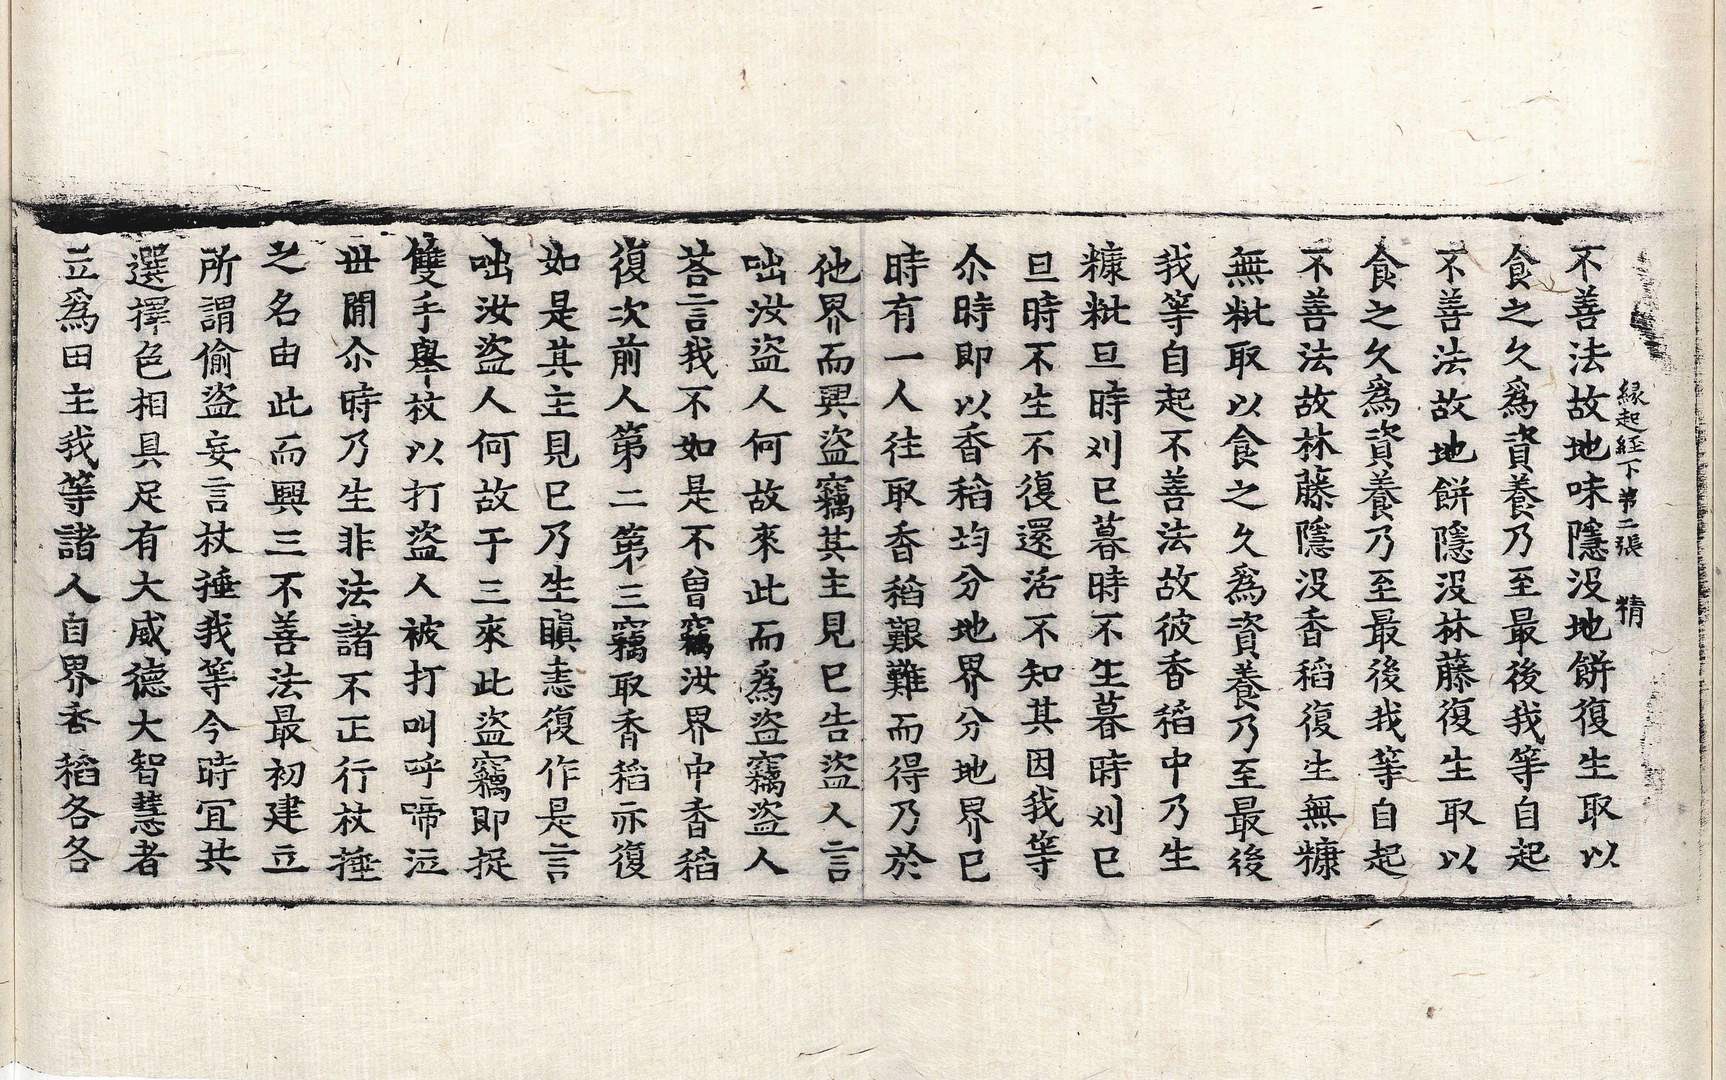 緣起經下第二張　精
不善法故地味隱沒地餅復生取以
食之久爲資養乃至最後我等自起
不善法故地餅隱沒林藤復生取以
食之久爲資養乃至最後我等自起
不善法故林藤隱沒香稻復生無糠
無粃取以食之久爲資養乃至最後
我等自起不善法故彼香稻中乃生
糠粃旦時刈已暮時不生暮時刈已
旦時不生不復還活不知其因我等
尒時即以香稻均分地界分地界已
時有一人往取香稻艱難而得乃於
他界而興盜竊其主見已告盜人言
咄汝盜人何故來此而爲盜竊盜人
荅言我不如是不曾竊汝界中香稻
復次前人第二第三竊取香稻亦復
如是其主見已乃生瞋恚復作是言
咄汝盜人何故于三來此盜竊即捉
雙手舉杖以打盜人被打叫呼啼泣
世閒尒時乃生非法諸不正行杖捶
之名由此而興三不善法最初建立
所謂偷盜妄言杖捶我等今時冝共
選擇色相具足有大威德大智慧者
立爲田主我等諸人自界香稻各各